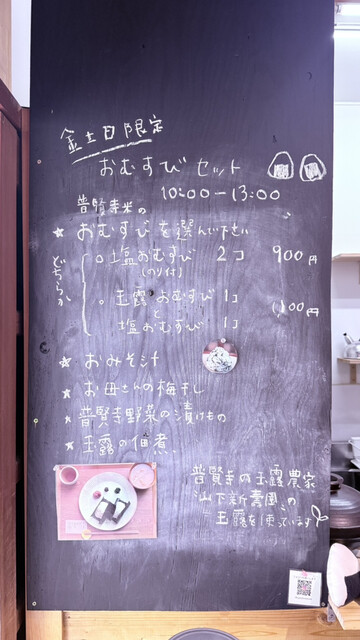 金土日限定
おむすびセット
10:00-13:00
普賢寺米の
★ おむすびを選んで下さい
どちらか
○ 塩おむすび 2コ 900円
(のり付)
○ 玉露おむすび 1コ
と
塩おむすび 1コ
★ おみそ汁
★ お母さんの梅干し
★ 普賢寺野菜の漬けもの
★ 玉露の佃煮
普賢寺の玉露農家
山下新壽園の
玉露を使っています